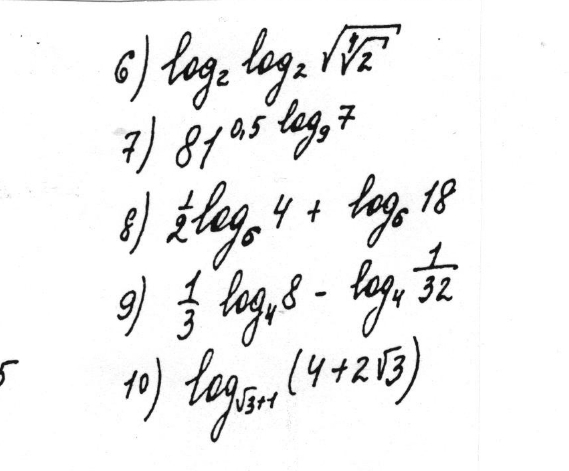 6) log₂ log₂ √(⁴√2)
7) 81^(0,5 log₉ 7)
8) ½ log₆ 4 + log₆ 18
9) 1/3 log₄ 8 - log₄ 1/32
5
10) log_(√3+1) (4+2√3)